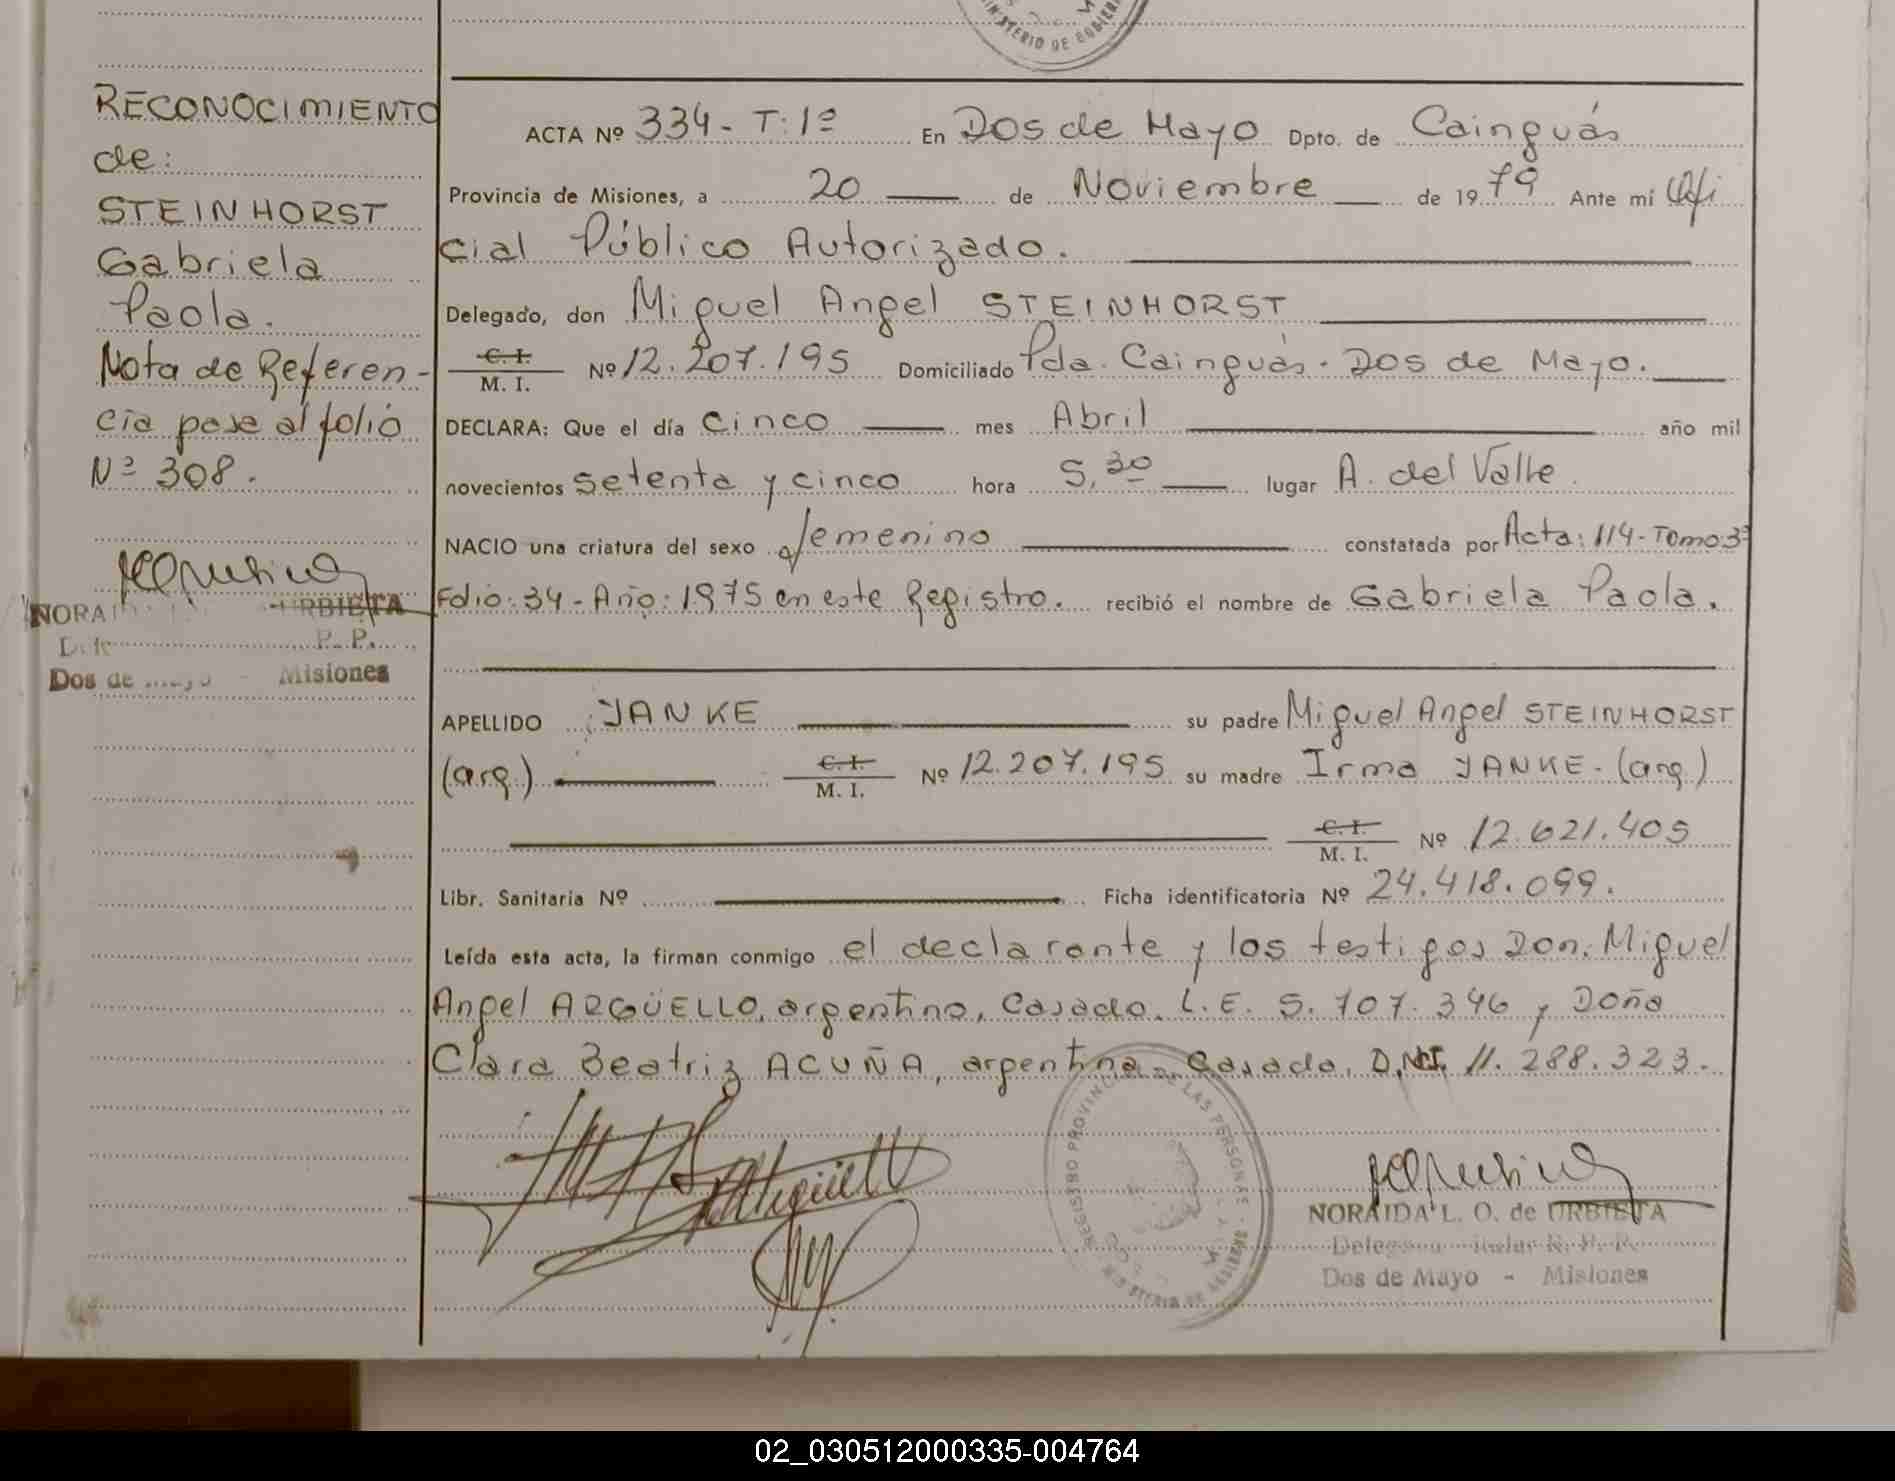 RECONOCIMIENTO
de:
STEINHORST
Gabriela
Paola.
Nota de Referen-
cia pase al folio
Nº 308.
NORAI URBIETA
P. P.
Dos de Mayo - Misiones
MINISTERIO DE GOBIER
ACTA Nº 334- T:1º En Dos de Mayo Dpto. de Cainguás
Provincia de Misiones, a 20 de Noviembre de 1979 Ante mí Ofi
cial Público Autorizado.
Delegado, don Miguel Angel STEINHORST
C. I.
M. I. Nº 12.207.195 Domiciliado Pda. Cainguás. Dos de Mayo.
DECLARA: Que el día cinco mes Abril año mil
novecientos setenta y cinco hora 5,30 lugar A. del Valle.
NACIO una criatura del sexo femenino constatada por Acta: 114-Tomo 3º
Folio: 34-Año: 1975 en este Registro. recibió el nombre de Gabriela Paola.
APELLIDO JANKE su padre Miguel Angel STEINHORST
(arg.) C. I.
M. I. Nº 12.207.195 su madre Irma JANKE-(arg.)
C. I.
M. I. Nº 12.621.405
Libr. Sanitaria Nº Ficha identificatoria Nº 24.418.099.
Leída esta acta, la firman conmigo el declarante y los testigos Don: Miguel
Angel ARGÜELLO, argentino, Casado. L.E. 5.707.346 y Doña
Clara Beatriz ACUÑA, argentina, Casada, D.N.I. 11.288.323.-
REGISTRO PROVINCIAL DE LAS PERSONAS
NORAIDA L. O. de URBIETA
Dos de Mayo - Misiones
02_030512000335-004764